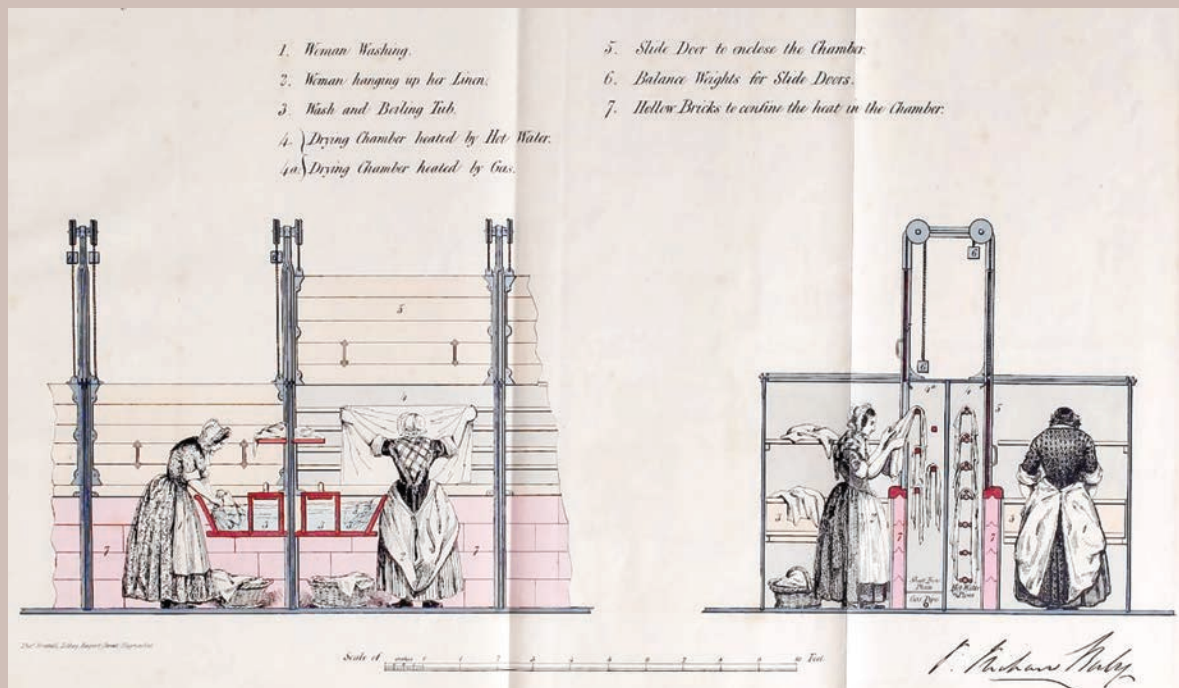 1. Woman Washing.
2. Woman hanging up her Linen.
3. Wash and Boiling Tub.
4. Drying Chamber heated by Hot Water.
4a. Drying Chamber heated by Gas.
5. Slide Door to enclose the Chamber.
6. Balance Weights for Slide Doors.
7. Hollow Bricks to confine the heat in the Chamber.
6 6 6
5
4
7 3 3 7
6
6
4a 4 5
3 7 7 3
Sheet Iron
Plate
Gas Pipe
Hot Water
Pipes
Scale of
1 2 3 4 5 6 7 8 9 10 Feet